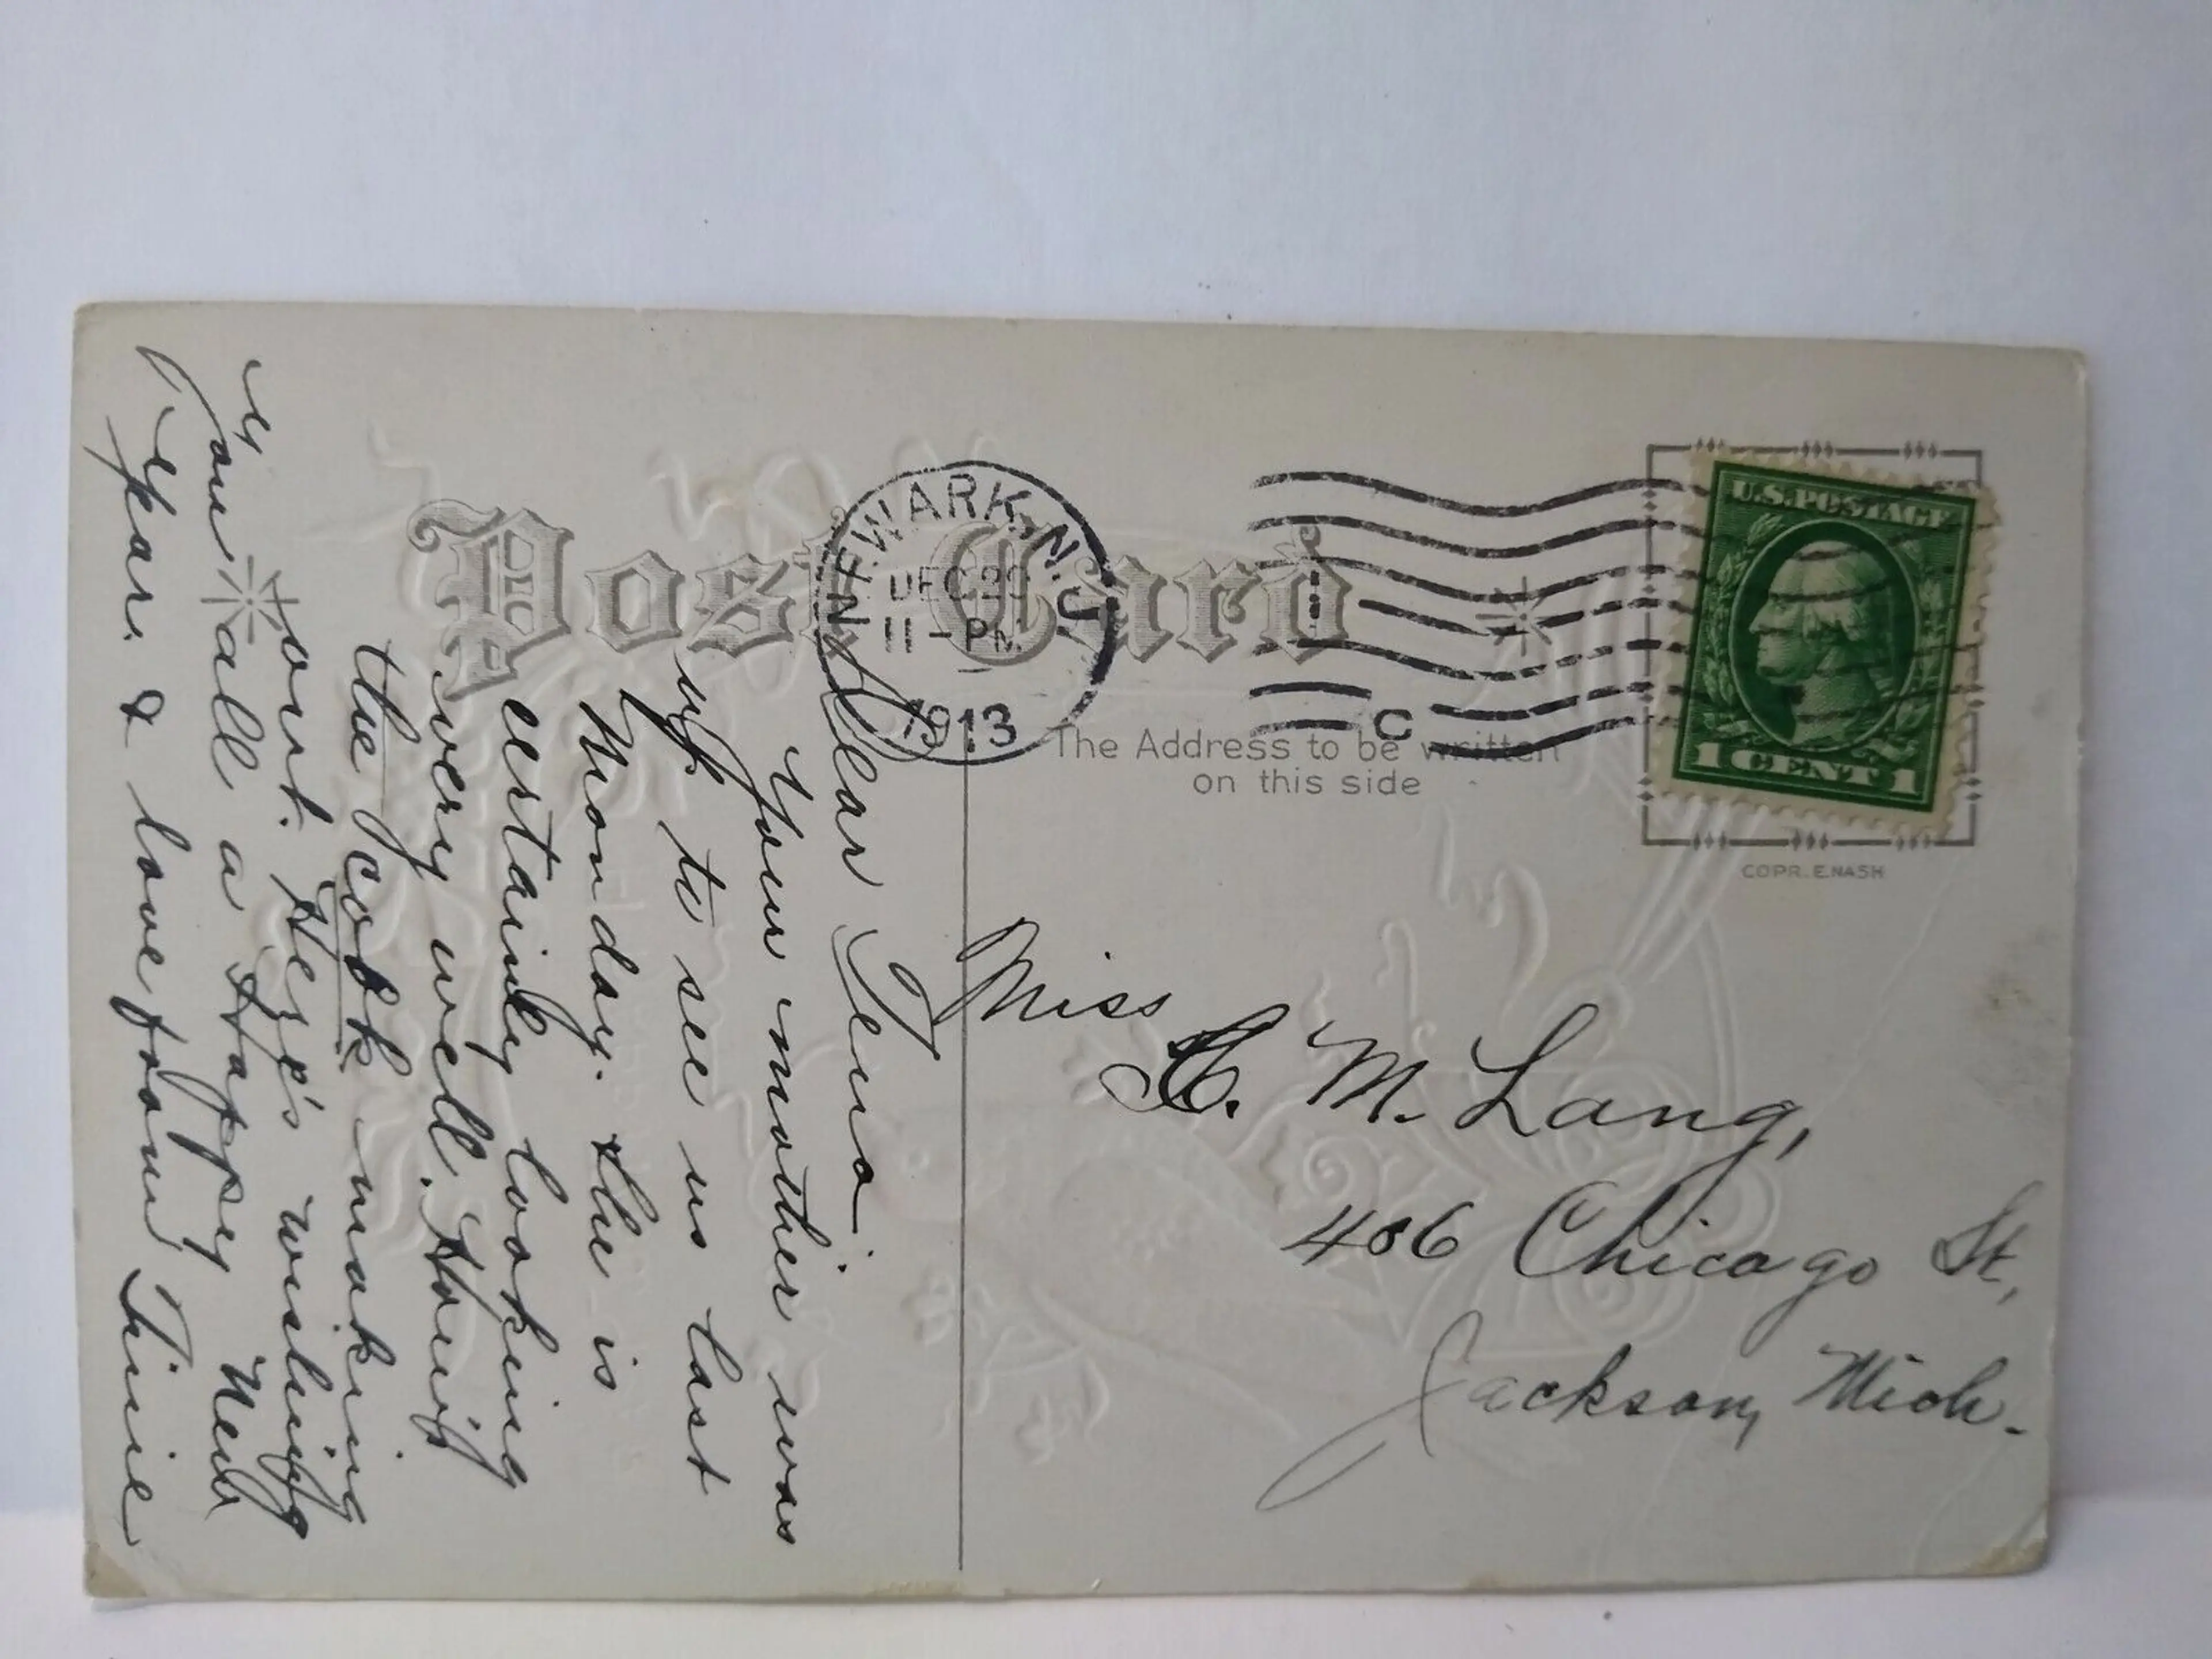 Post Card
NEWARK, N.J.
DEC 29
11-PM
1913
C
U.S. POSTAGE
1 CENT 1
The Address to be written
on this side
COPR. E. NASH
Miss
C. M. Lang,
406 Chicago St,
Jackson, Mich.
Dear Tena:
Your mother was
up to see us last
Monday. She is
certainly looking
very well.
the cook making
out. Here's wishing
you all a Happy New
Year. & love from Tinie